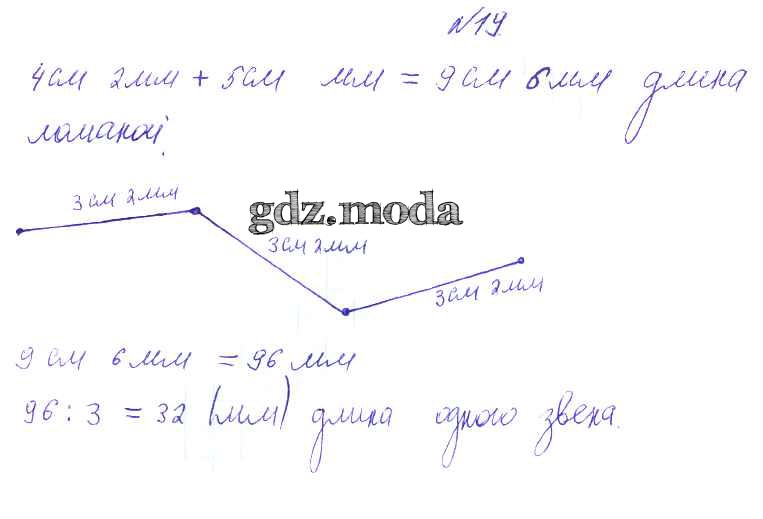 №19.
4см 2мм + 5см мм = 9см 6мм длина
ломаной.
3см 2мм
gdz.moda
3см 2мм
3см 2мм
9см 6мм = 96 мм
96 : 3 = 32 (мм) длина одного звена.